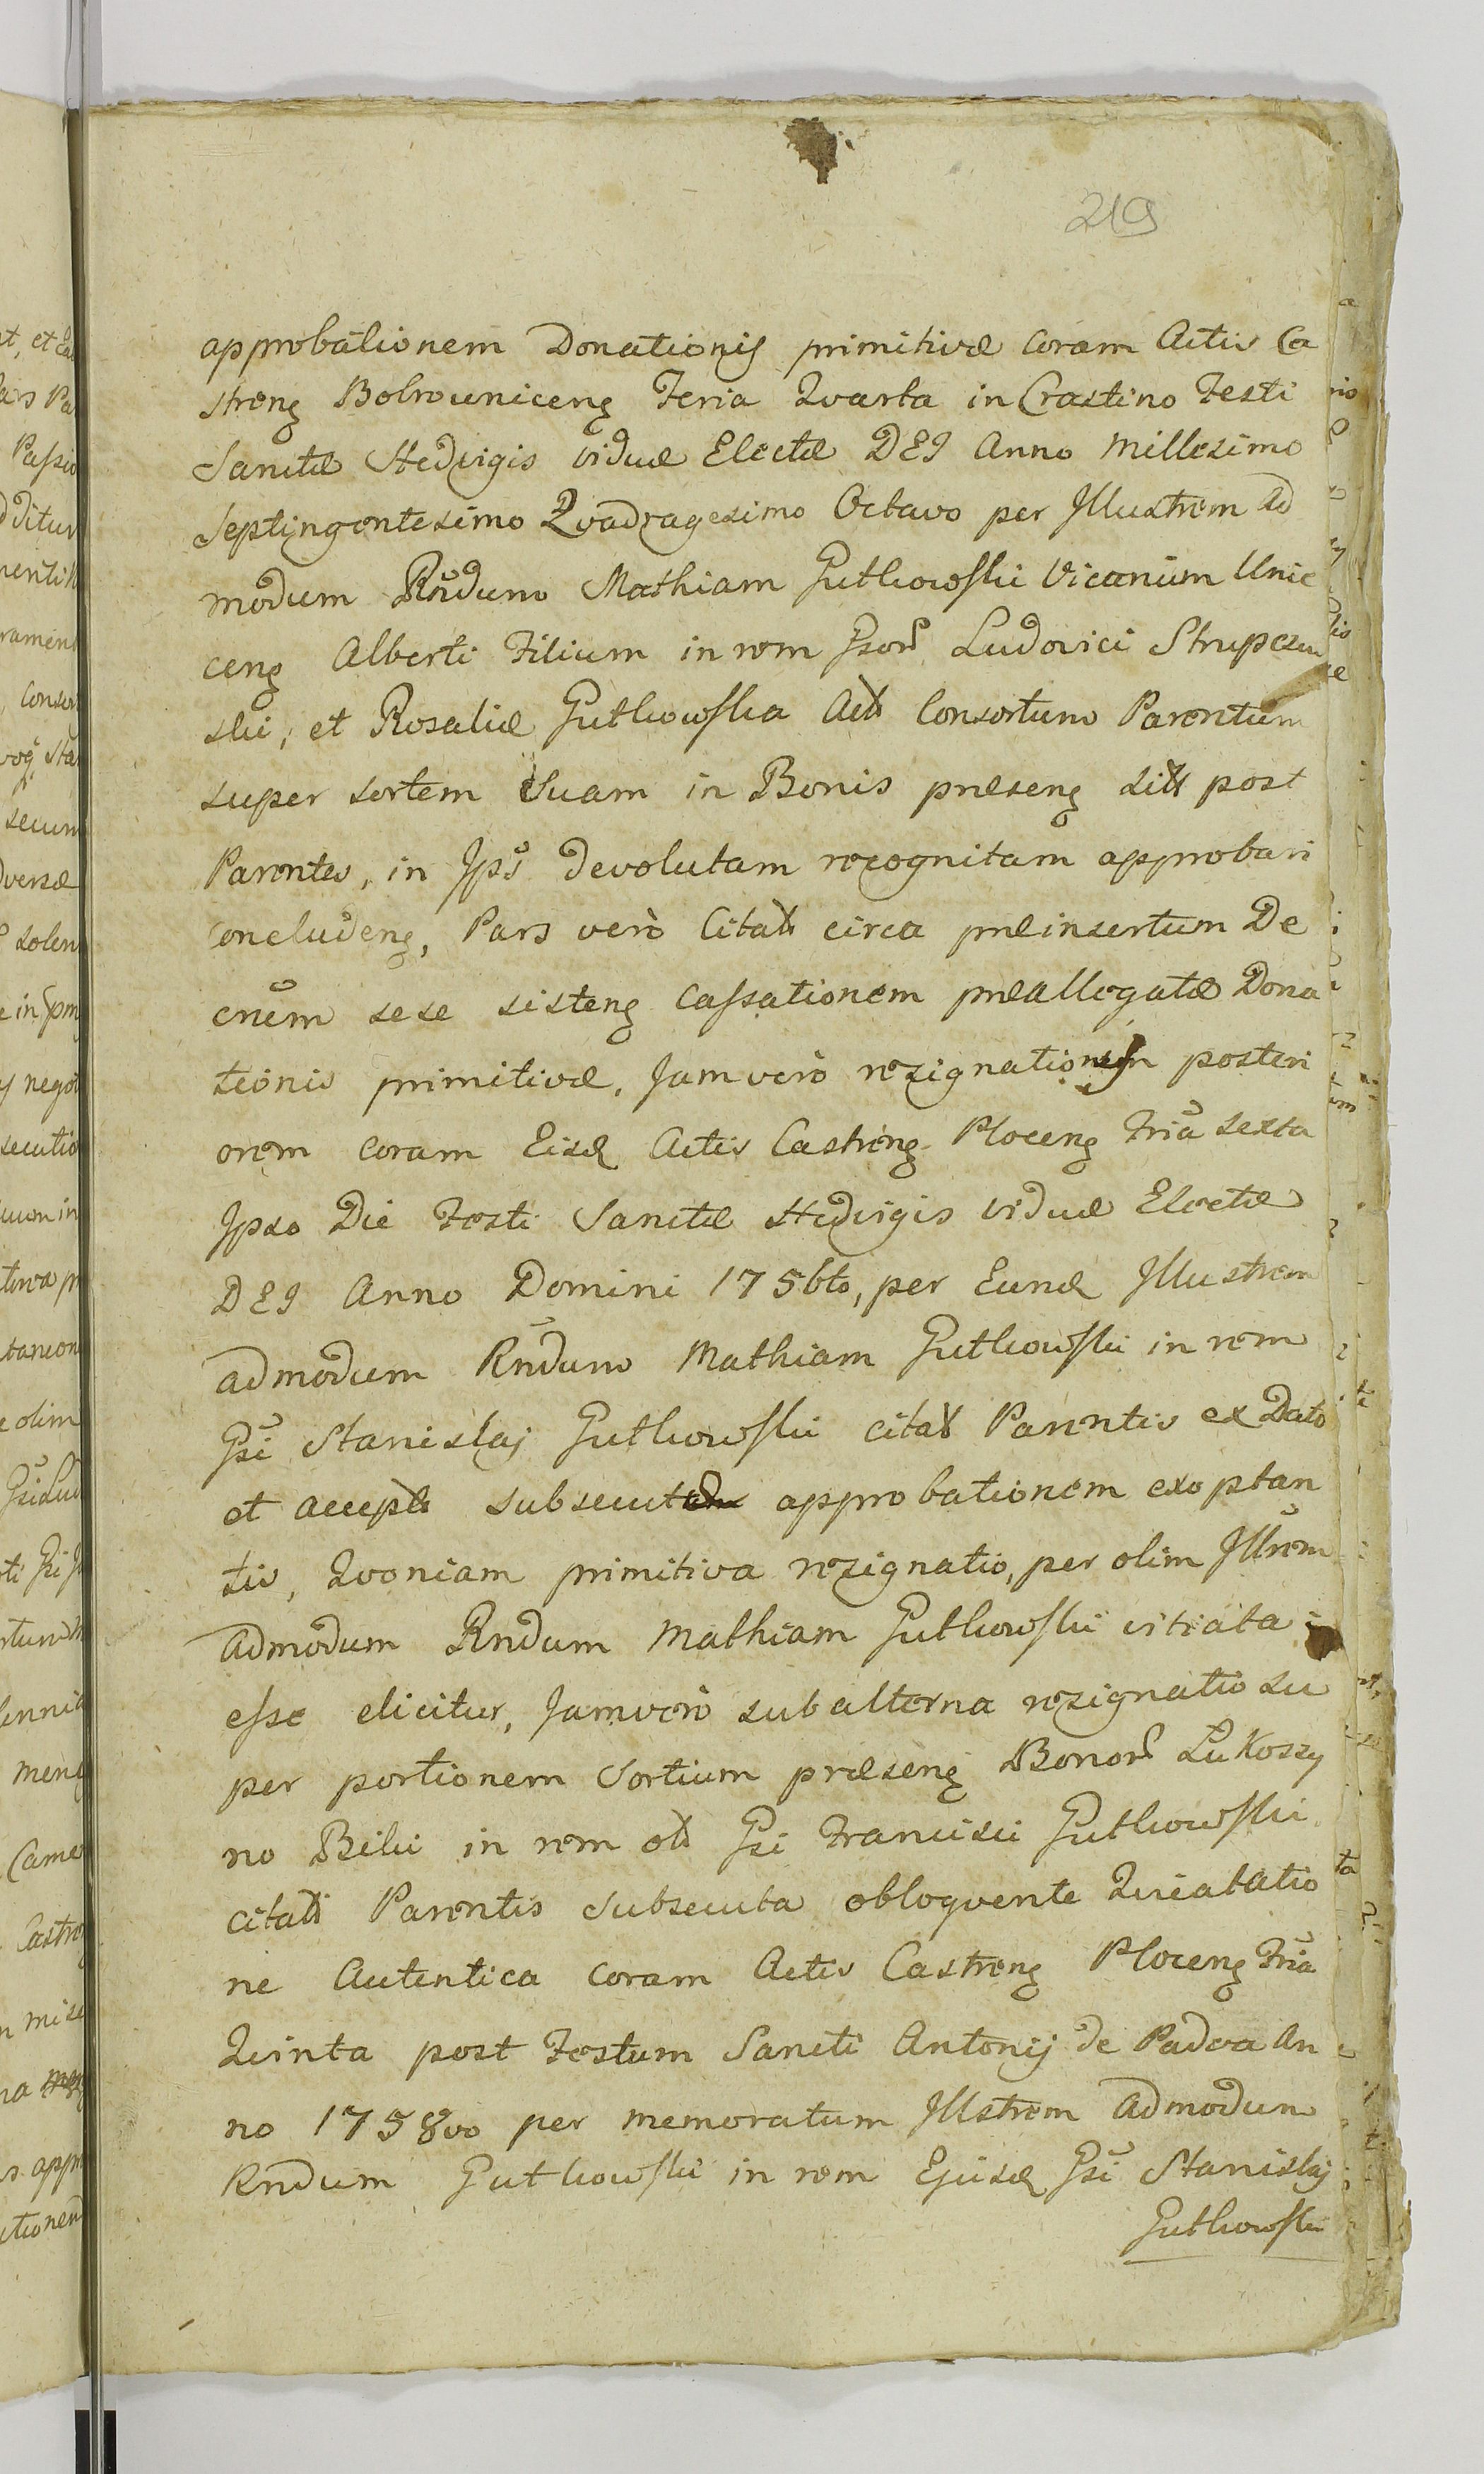 219
approbationem Donationis primitivæ coram Actis Ca
streng Bobrowniceng Feria Qvarta in Crastino Festi
Sanctæ Hedvigis viduæ Electæ DEI Anno Millesimo
Septingentesimo Qvadragesimo Octavo per Illustrem ad
modum Rndum Mathiam Gutkowski Vicarium Unie
ceng Alberti Filium in rem Gsor Ludovici Strupczew
ski, et Rosaliæ Gutkowska Actt Consortum Parentum
super sortem Suam in Bonis præseng sitt post
Parentes, in Ips devolutam recognitam approbari
concludeng, Pars verò Citatt circa præinsertum De
crum sese sisteng cassationem præallegatæ Dona
tionis primitivæ, Jam verò rezignationem posteri
orem coram Eisd Actis Castreng Ploceng Fria sexta
Ipso Die Festi Sanctæ Hedvigis viduæ Electæ
DEI Anno Domini 1756to, per Eund Illustrem
admodum Rndum Mathiam Gutkowski in rem
Gsi Stanislaj Gutkowski citat Parentis ex Dato
et accept subsecutæ approbationem exoptan
tis, Qvoniam primitiva rezignatio, per olim Illrem
admodum Rndum Mathiam Gutkowski vitiata
esse elicitur, Jamverò subalterna rezignatio su
per portionem Sortium præseng Bonor Lukoszy
no Biki in rem ol Gsi Francisci Gutkowski
citati Parentis subsecuta obloqvente Qvietatio
ne Autentica coram Actis Castreng Ploceng Fria
Qvinta post Festum Sancti Antonij de Padva An
no 1758vo per memoratum Illstrem admodum
Rndum Gutkowski in rem Ejusd Gsi Stanislaj
Gutkowski